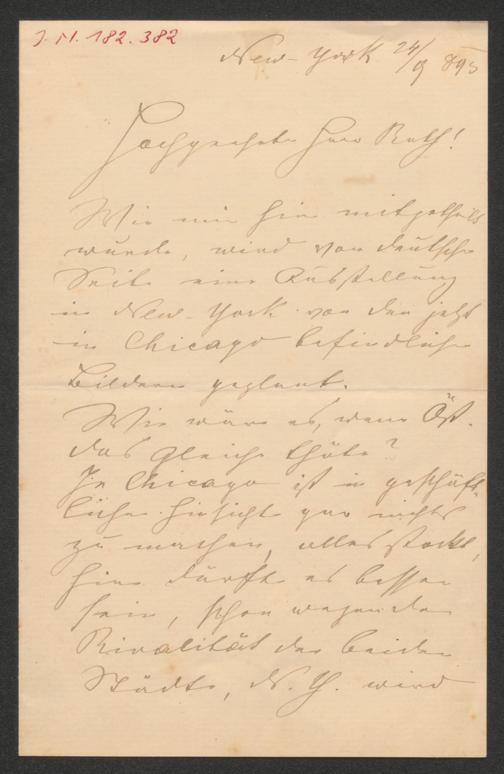 J. N. 182.382
New-York 24/9 893
Hochgeehrter Herr Rath!
Wie mir hier mitgetheilt
wurde, wird von deutscher
Seite eine Ausstellung
in New-York von den jetzt
in Chicago befindlichen
Bildern geplant.
Wie wäre es, wenn Öst.
das gleiche thäte?
In Chicago ist in geschäft-
licher Hinsicht gar nichts
zu machen, alles stockt,
hier dürfte es besser
sein, schon wegen der
Rivalität der beiden
Städte, N. Y. wird